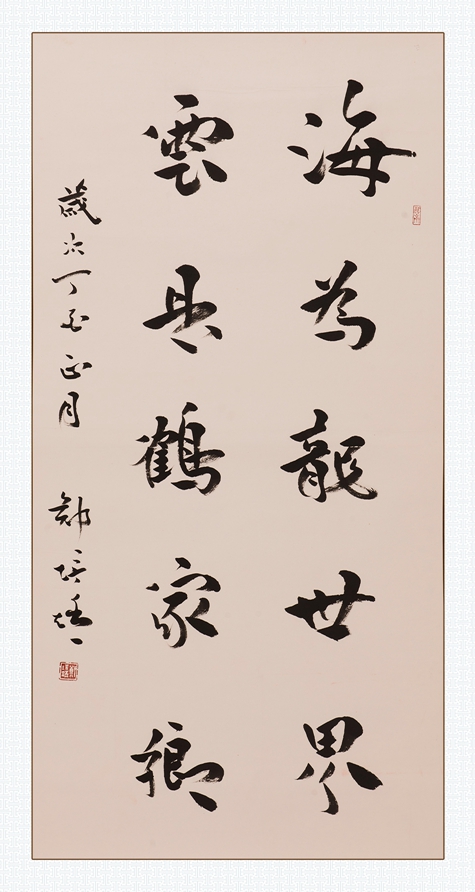 海為龍世界
雲是鶴家鄉
歲次丁 正月